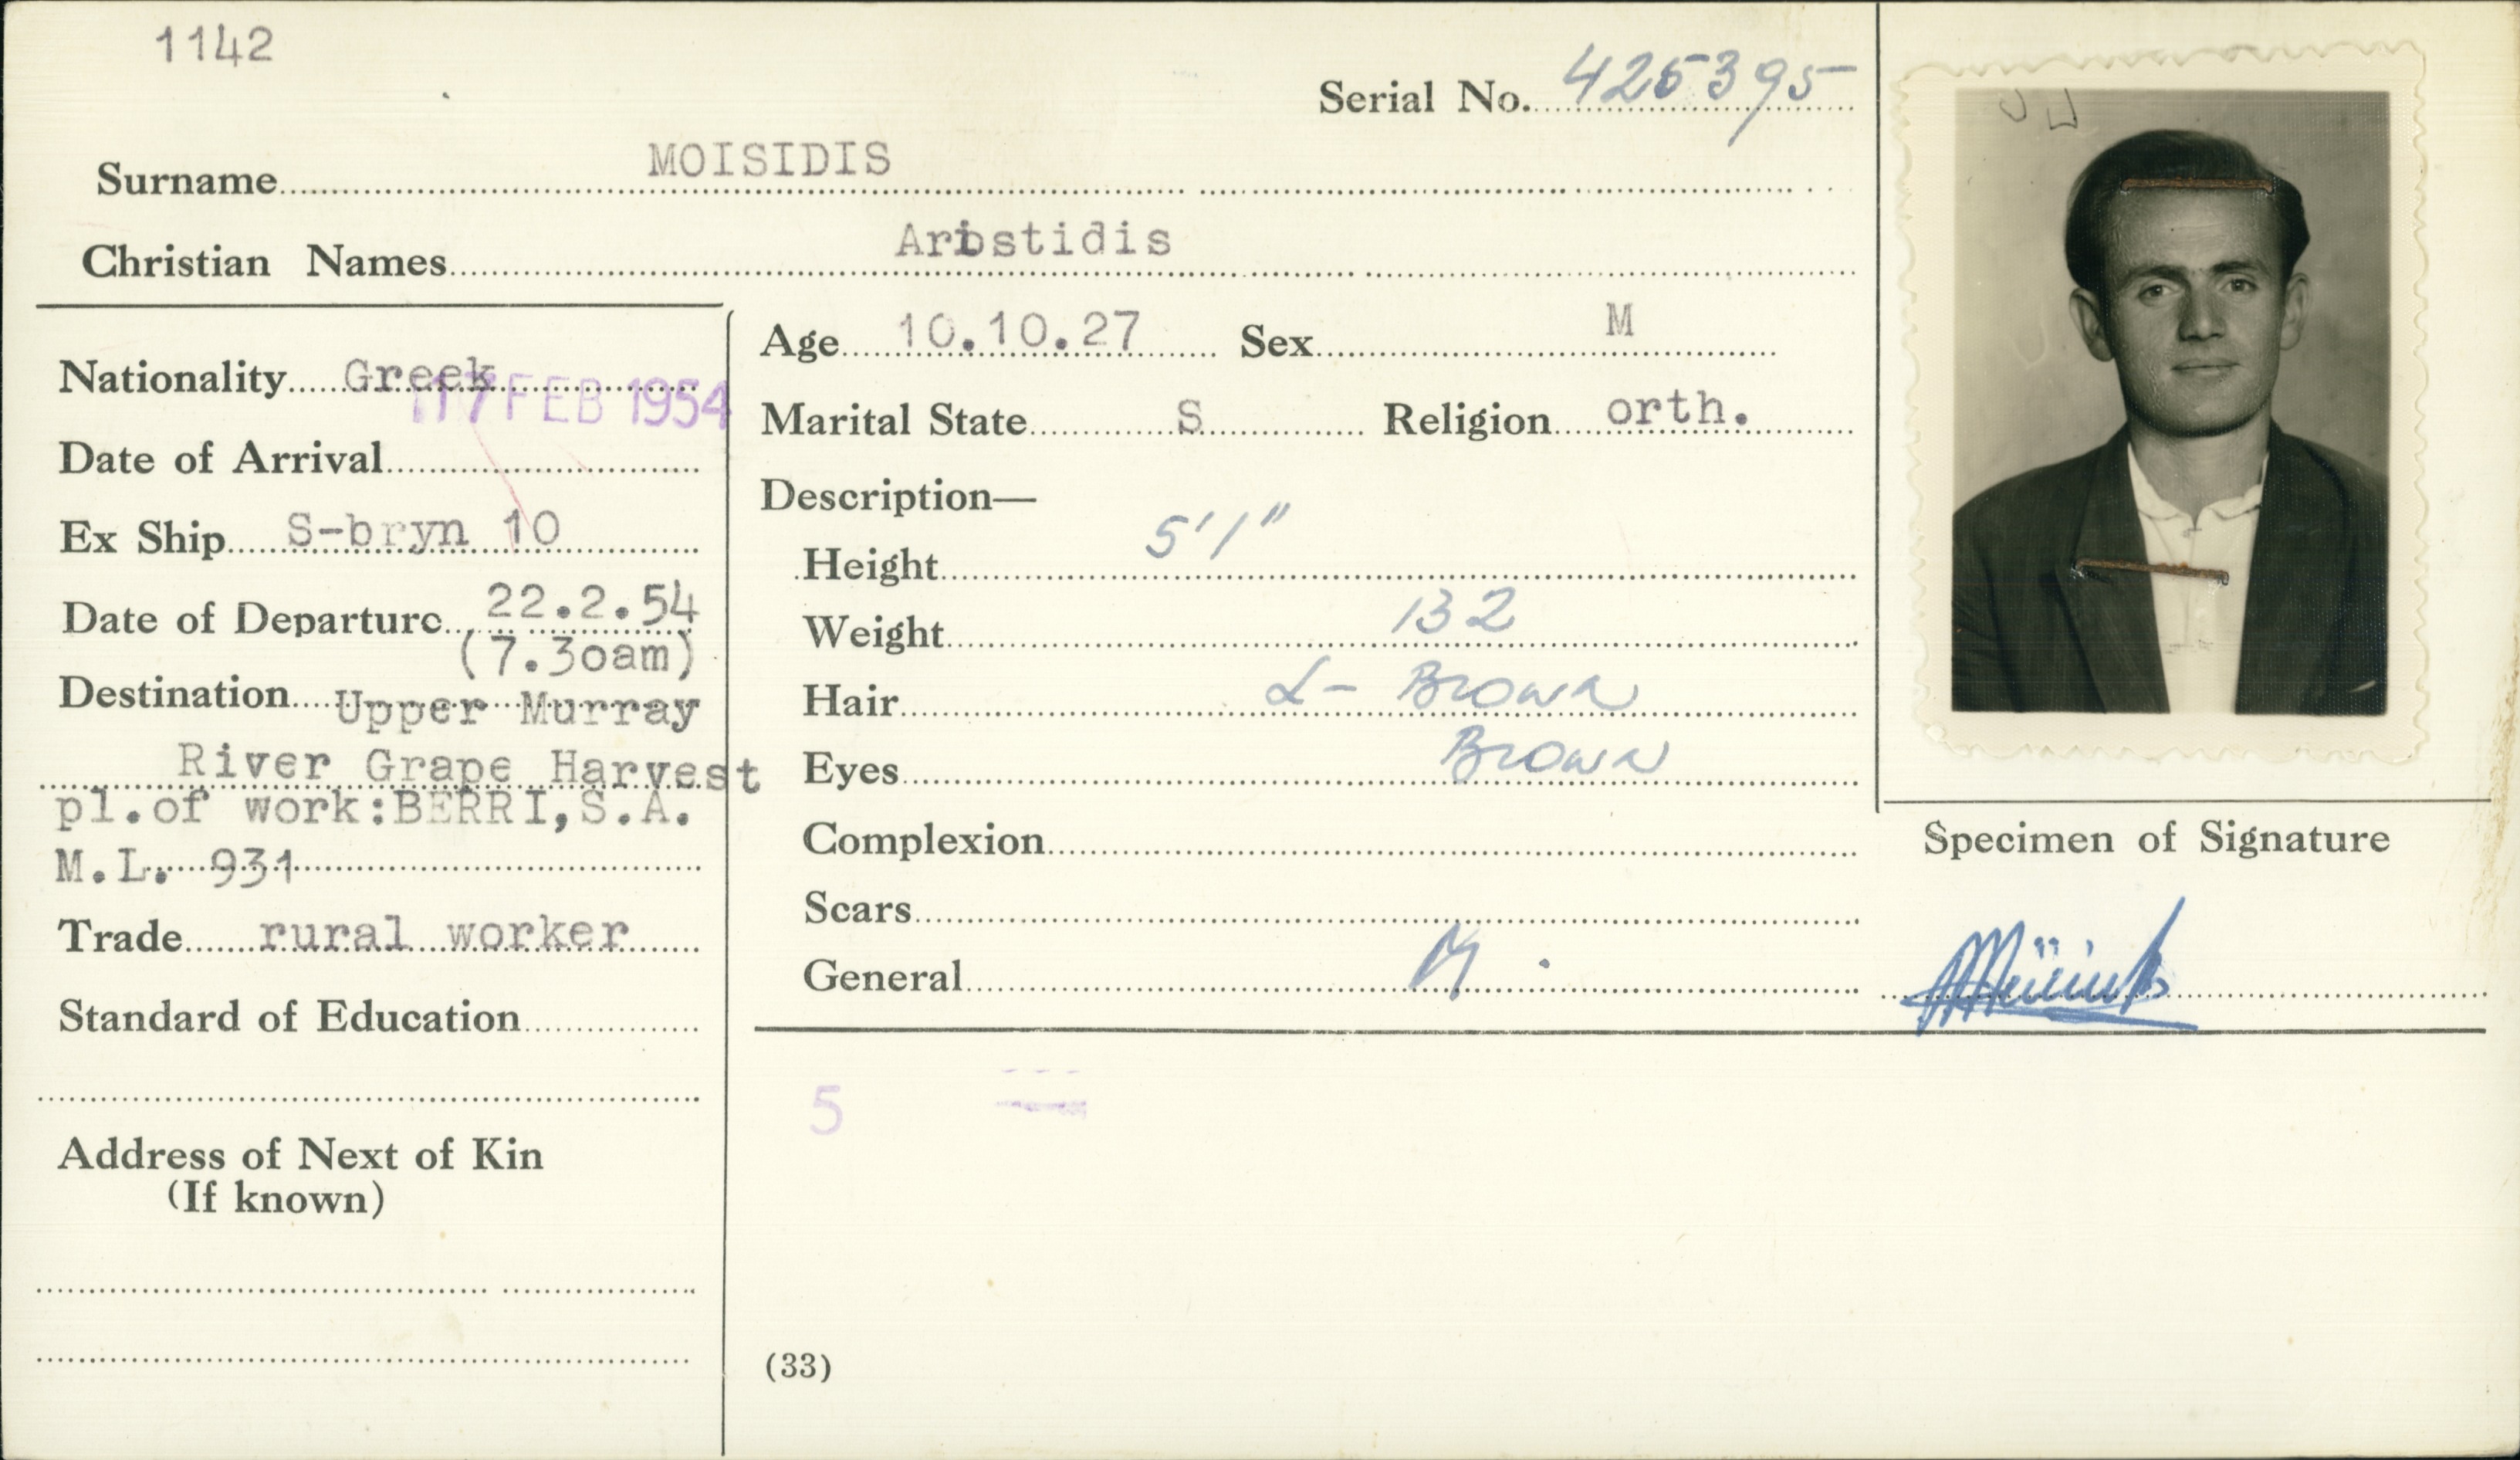 1142
Serial No. 425395
Surname MOISIDIS
Christian Names Aristidis
Nationality Greek
17 FEB 1954
Date of Arrival
Ex Ship S-bryn 10
Date of Departure 22.2.54
(7.3oam)
Destination Upper Murray
River Grape Harvest
pl.of work:BERRI,S.A.
M.L. 931
Trade rural worker
Standard of Education
Address of Next of Kin
(If known)
Age 10.10.27 Sex M
Marital State S Religion orth.
Description—
Height 5'1"
Weight 132
Hair L- Brown
Eyes Brown
Complexion
Scars
General M.
5
(33)
Specimen of Signature